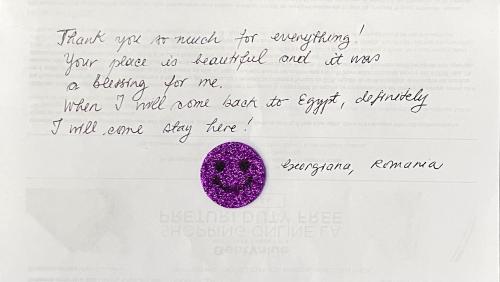 Thank you so much for everything!
Your place is beautiful and it was
a blessing for me.
When I will come back to Egypt, definitely
I will come stay here!
Georgiana, Romania
PREȚURI DUTY FREE
SHOPPING ONLINE LA